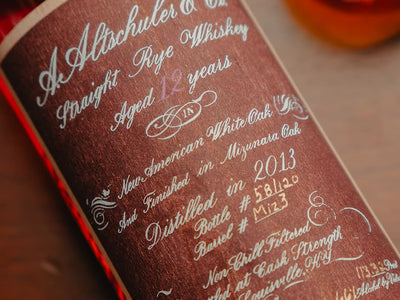 A. Altschuler & Co.
Straight Rye Whiskey
Aged 12 years
IN
New American White Oak
And Finished in Mizunara Oak
Distilled in 2013
Bottle # 58/120
Barrel # Miz3
Non-Chill Filtered
at Cask Strength
Louisville, Ky